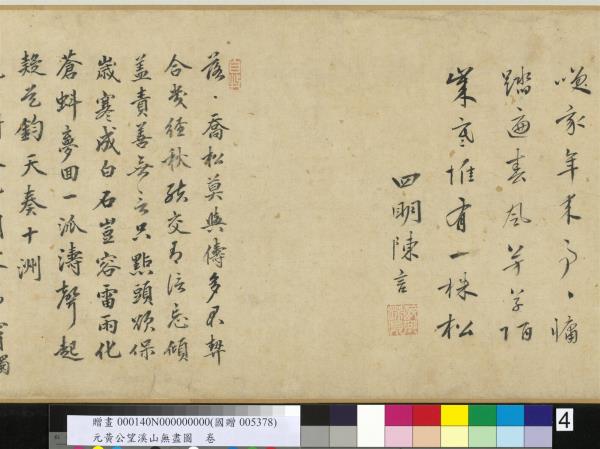 嗟我年來事〻慵
踏遍春風芳草陌
歲寒惟有一株松
四明陳言
落〻喬松莫與儔多君契
合幾經秋結交有信忘傾
蓋責善無言只點頭頌保
歲寒成白石豈容雷雨化
蒼蚪夢回一派濤聲起
疑是鈞天奏十洲
贈畫 000140N000000000(國贈 005378)
元黃公望溪山無盡圖 卷
4